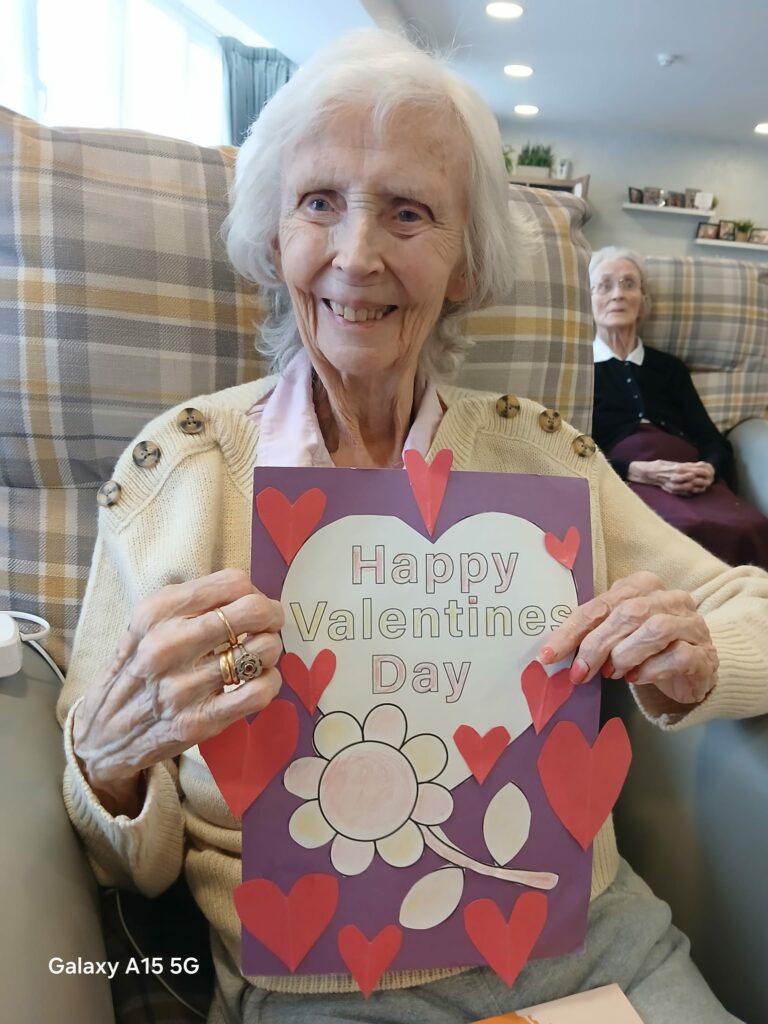 Happy
Valentines
Day
Galaxy A15 5G